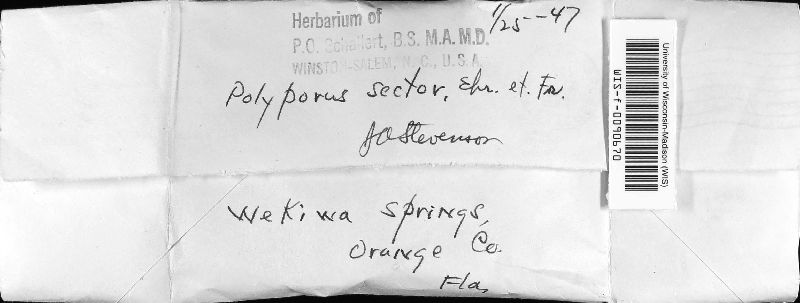 Herbarium of
P.O. Schallert, B.S. M.A. M.D.
WINSTON-SALEM, N. C., U. S. A.
1/25--47
Polyporus sector, Ehr. et. Fr.
JA Stevenson
Wekiwa Springs,
Orange Co
Fla,
University of Wisconsin-Madison (WIS)
WIS-f-0090670